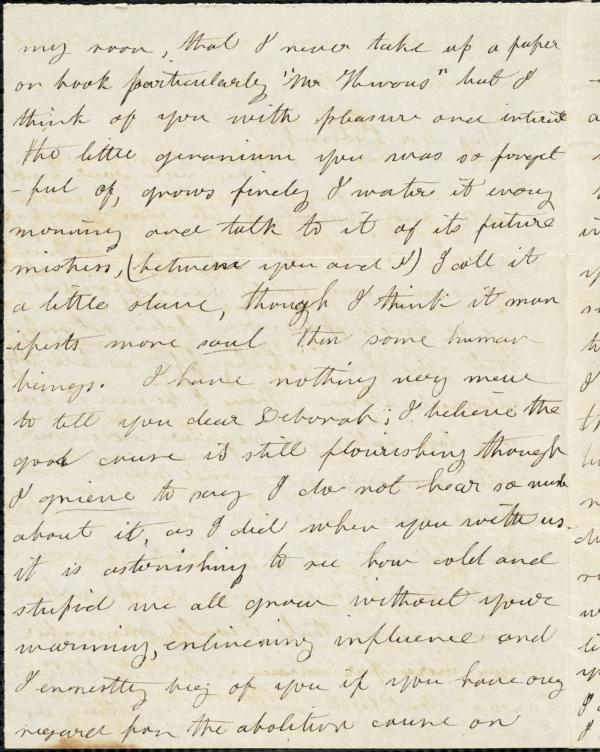 my room, that I never take up a paper
or book particularly "Mr Thwous" but I
think of you with pleasure and interest
the little geranium you was so forget
-ful of, grows finely I water it every
morning and talk to it of its future
mistress, (between you and I) I call it
a little slave, though I think it man
-ifests more soul than some human
beings. I have nothing very new
to tell you dear Deborah; I believe the
good cause is still flourishing though
I grieve to say I do not hear so much
about it, as I did when you with us.
it is astonishing to see how cold and
stupid we all grow without your
warming, enlivening influence and
I earnestly beg of you if you have any
regard for the abolition cause or